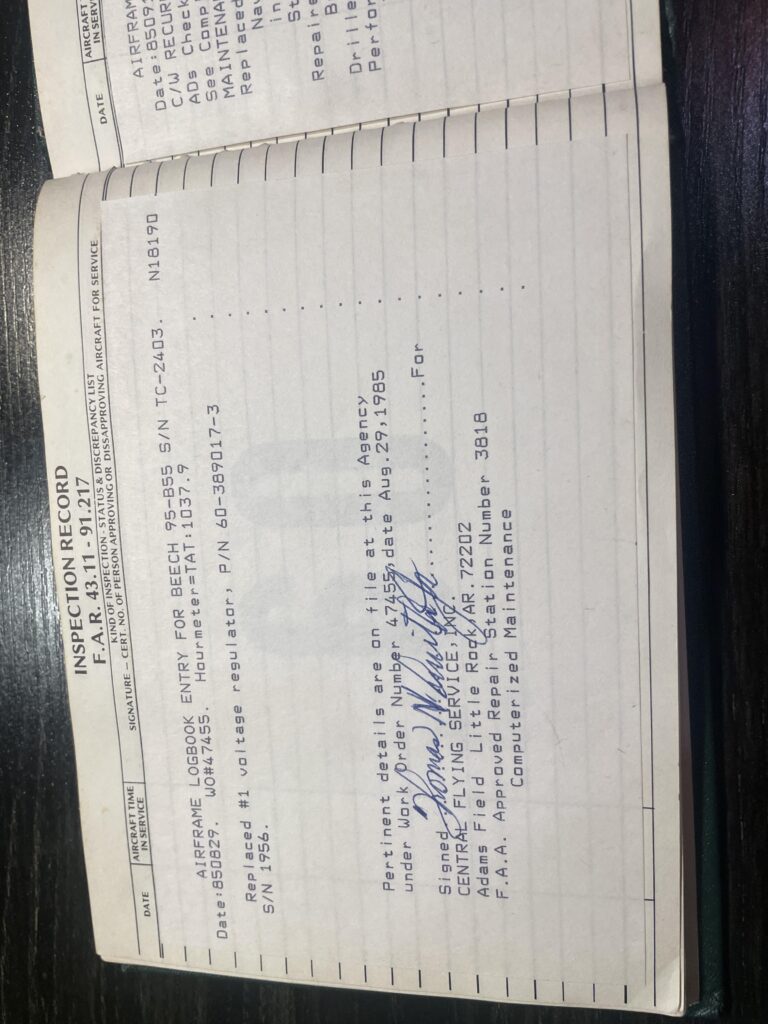 INSPECTION RECORD
F.A.R. 43.11 - 91.217
KIND OF INSPECTION - STATUS & DISCREPANCY LIST
SIGNATURE — CERT. NO. OF PERSON APPROVING OR DISSAPPROVING AIRCRAFT FOR SERVICE
DATE
AIRCRAFT TIME
IN SERVICE
AIRFRAME LOGBOOK ENTRY FOR BEECH 95-B55 S/N TC-2403. N18190
Date:850829. WO#47455. Hourmeter=TAT:1037.9
Replaced #1 voltage regulator, P/N 60-389017-3
S/N 1956.
Pertinent details are on file at this Agency
under Work Order Number 47455,date Aug.29,1985
Signed Thomas ................For
CENTRAL FLYING SERVICE,INC.
Adams Field Little Rock,AR.72202
F.A.A. Approved Repair Station Number 3818
Computerized Maintenance
DATE
AIRCRAFT
IN SERV
AIRFRAM
Date:8509
C/W RECUR
ADs Check
See Comp
MAINTENA
Replaced
Na
in
St
Repaire
B
Drille
Perfor